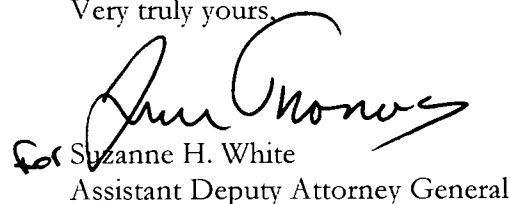 Very truly yours,
For Suzanne H. White
Assistant Deputy Attorney General